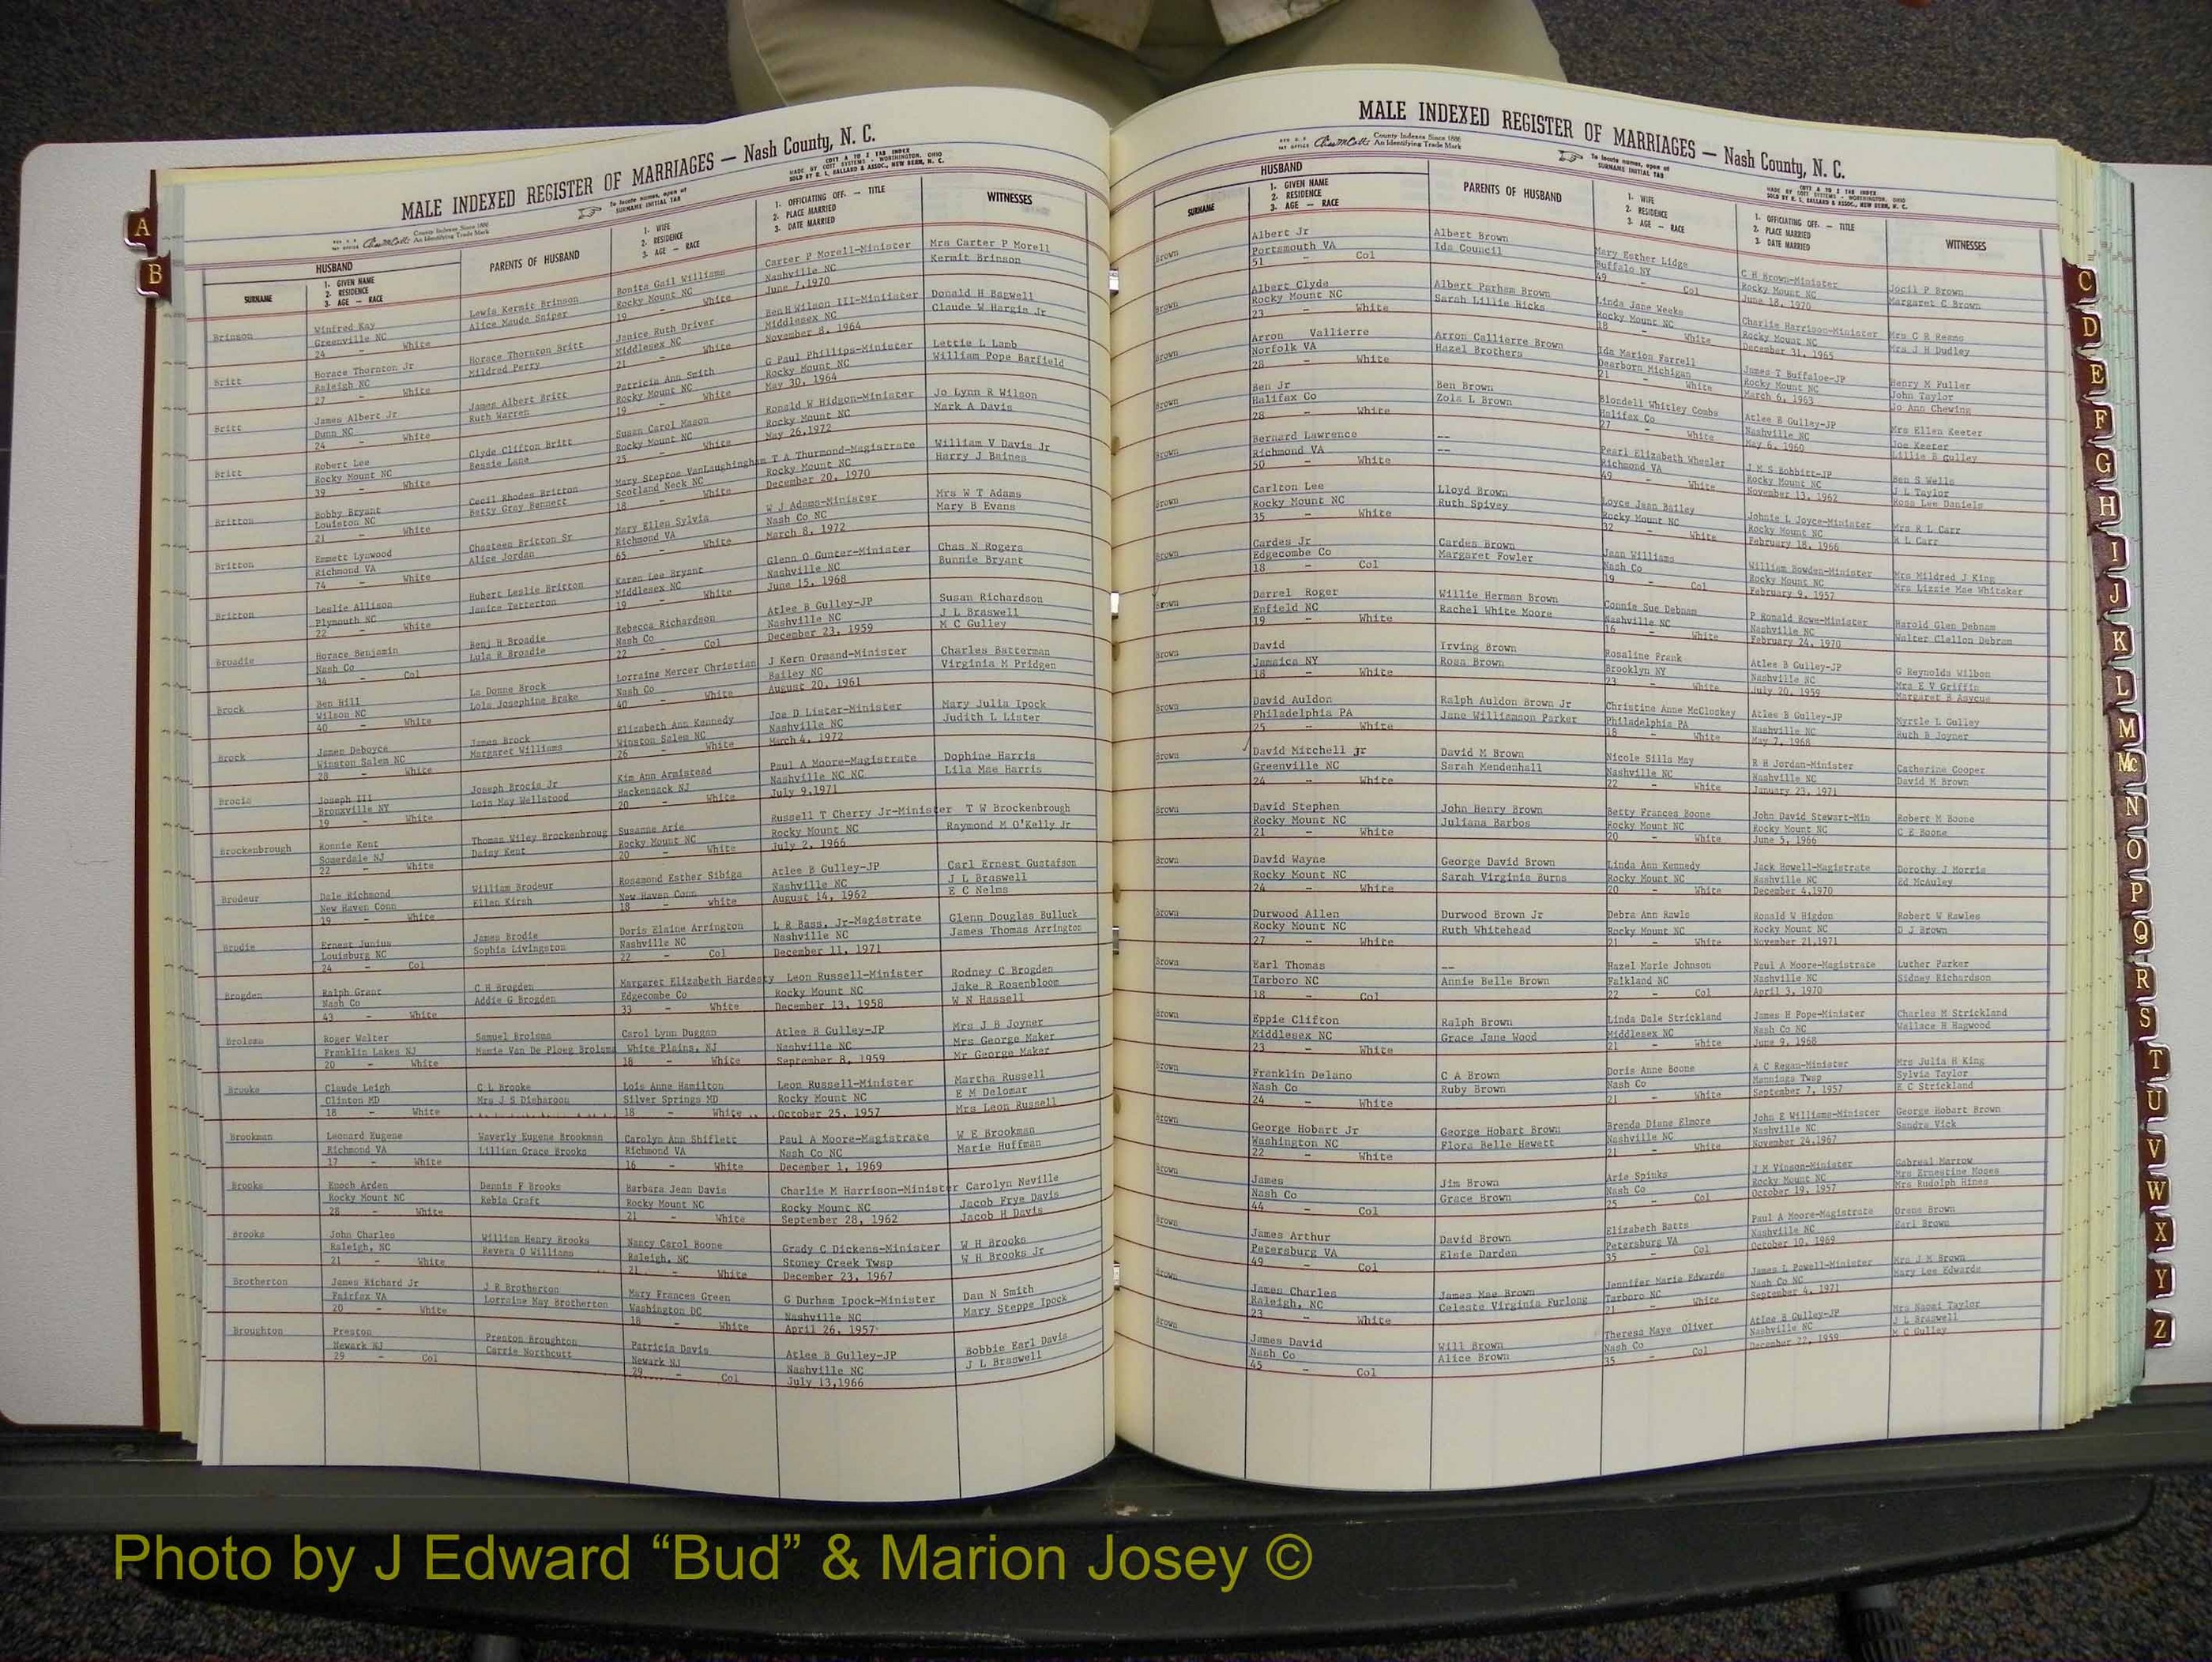 MALE INDEXED REGISTER OF MARRIAGES — Nash County, N. C.
County Indexes Since 1888
An Identifying Trade Mark
To locate names, open at
SURNAME INITIAL TAB
COTT A TO Z TAB INDEX
MADE BY COTT SYSTEMS - WORTHINGTON, OHIO
SOLD BY R. L. BALLARD & ASSOC., NEW BERN, N. C.
HUSBAND
SURNAME
1. GIVEN NAME
2. RESIDENCE
3. AGE — RACE
PARENTS OF HUSBAND
1. WIFE
2. RESIDENCE
3. AGE — RACE
1. OFFICIATING OFF. - TITLE
2. PLACE MARRIED
3. DATE MARRIED
WITNESSES
Brinson Winfred Kay Lewis Kermit Brinson Bonita Gail Williams Carter P Morell-Minister Mrs Carter P Morell
Greenville NC Alice Maude Sniper Rocky Mount NC Nashville NC Kermit Brinson
24 - White 19 - White June 7,1970
Britt Horace Thornton Jr Horace Thornton Britt Janice Ruth Driver Ben H Wilson III-Miniister Donald H Bagwell
Raleigh NC Mildred Perry Middlesex NC Middlesex NC Claude W Hargis Jr
27 - White 21 - White November 8, 1964
Britt James Albert Jr James Albert Britt Patricia Ann Smith G Paul Phillips-Minister Lettie L Lamb
Dunn NC Ruth Warren Rocky Mount NC Rocky Mount NC William Pope Barfield
24 - White 19 - White May 30, 1964
Britt Robert Lee Clyde Clifton Britt Susan Carol Mason Ronald W Hidgon-Minister Jo Lynn R Wilson
Rocky Mount NC Bessie Lane Rocky Mount NC Rocky Mount NC Mark A Davis
39 - White 25 - White May 26,1972
Britton Bobby Bryant Cecil Rhodes Britton Mary Steptoe VanLaughingham T A Thurmond-Magistrate William V Davis Jr
Louiston NC Betty Gray Bennett Scotland Neck NC Rocky Mount NC Harry J Baines
21 - White 18 - White December 20, 1970
Britton Emmett Lynwood Chasteen Britton Sr Mary Ellen Sylvia W J Adams-Minister Mrs W T Adams
Richmond VA Alice Jordan Richmond VA Nash Co NC Mary B Evans
74 - White 65 - White March 8, 1972
Britton Leslie Allison Hubert Leslie Britton Karen Lee Bryant Glenn O Gunter-Minister Chas N Rogers
Plymouth NC Janice Tetterton Middlesex NC Nashville NC Bunnie Bryant
22 - White 19 - White June 15, 1968
Broadie Horace Benjamin Benj H Broadie Rebecca Richardson Atlee B Gulley-JP Susan Richardson
Nash Co Lula R Broadie Nash Co Nashville NC J L Braswell
34 - Col 22 - Col December 23, 1959 M C Gulley
Brock Ben Hill La Donne Brock Lorraine Mercer Christian J Kern Ormand-Minister Charles Batterman
Wilson NC Lola Josephine Brake Nash Co Bailey NC Virginia M Pridgen
40 - White 40 - White August 20, 1961
Brock James Deboyce James Brock Elizabeth Ann Kennedy Joe D Lister-Minister Mary Julia Ipock
Winston Salem NC Margaret Williams Winston Salem NC Nashville NC Judith L Lister
28 - White 26 - White March 4, 1972
Brocia Joseph III Joseph Brocia Jr Kim Ann Armistead Paul A Moore-Magistrate Dophine Harris
Bronxville NY Lois May Wellstood Hackensack NJ Nashville NC NC Lila Mae Harris
19 - White 20 - White July 9,1971
Brockenbrough Ronnie Kent Thomas Wiley Brockenbroug Susanne Arie Russell T Cherry Jr-Minister T W Brockenbrough
Somerdale NJ Daisy Kent Rocky Mount NC Rocky Mount NC Raymond M O'Kelly Jr
22 - White 20 - White July 2, 1966
Brodeur Dale Richmond William Brodeur Rosamond Esther Sibiga Atlee B Gulley-JP Carl Ernest Gustafson
New Haven Conn Ellen Kirsh New Haven Conn Nashville NC J L Braswell
19 - White 18 - white August 14, 1962 E C Nelms
Brodie Ernest Junius James Brodie Doris Elaine Arrington L R Bass, Jr-Magistrate Glenn Douglas Bulluck
Louisburg NC Sophia Livingston Nashville NC Nashville NC James Thomas Arrington
24 - Col 22 - Col December 11, 1971
Brogden Ralph Grant C H Brogden Margaret Elizabeth Hardesty Leon Russell-Minister Rodney C Brogden
Nash Co Addie G Brogden Edgecombe Co Rocky Mount NC Jake R Rosenbloom
43 - White 33 - White December 13, 1958 W N Hassell
Brolsma Roger Walter Samuel Brolsma Carol Lynn Duggan Atlee B Gulley-JP Mrs J B Joyner
Franklin Lakes NJ Mamie Van De Ploeg Brolsma White Plains, NJ Nashville NC Mrs George Maker
20 - White 18 - White September 8, 1959 Mr George Maker
Brooke Claude Leigh C L Brooke Lois Anne Hamilton Leon Russell-Minister Martha Russell
Clinton MD Mrs J S Disharoon Silver Springs MD Rocky Mount NC E M Delomar
18 - White 18 - White October 25, 1957 Mrs Leon Russell
Brookman Leonard Eugene Waverly Eugene Brookman Carolyn Ann Shiflett Paul A Moore-Magistrate W E Brookman
Richmond VA Lillian Grace Brooks Richmond VA Nash Co NC Marie Huffman
17 - White 16 - White December 1, 1969
Brooks Enoch Arden Dennis F Brooks Barbara Jean Davis Charlie M Harrison-Minister Carolyn Neville
Rocky Mount NC Rebia Craft Rocky Mount NC Rocky Mount NC Jacob Frye Davis
28 - White 21 - White September 28, 1962 Jacob H Davis
Brooks John Charles William Henry Brooks Nancy Carol Boone Grady C Dickens-Minister W H Brooks
Raleigh, NC Revera O Williams Raleigh, NC Stoney Creek Twsp W H Brooks Jr
21 - White 21 - White December 23, 1967
Brotherton James Richard Jr J R Brotherton Mary Frances Green G Durham Ipock-Minister Dan N Smith
Fairfax VA Lorraine May Brotherton Washington DC Nashville NC Mary Steppe Ipock
20 - White 18 - White April 26, 1957
Broughton Preston Preston Broughton Patricia Davis Atlee B Gulley-JP Bobbie Earl Davis
Newark NJ Carrie Northcutt Newark NJ Nashville NC J L Braswell
29 - Col 29 - Col July 13,1966
MALE INDEXED REGISTER OF MARRIAGES — Nash County, N. C.
County Indexes Since 1888
An Identifying Trade Mark
To locate names, open at
SURNAME INITIAL TAB
COTT A TO Z TAB INDEX
MADE BY COTT SYSTEMS - WORTHINGTON, OHIO
SOLD BY R. L. BALLARD & ASSOC., NEW BERN, N. C.
HUSBAND
SURNAME
1. GIVEN NAME
2. RESIDENCE
3. AGE — RACE
PARENTS OF HUSBAND
1. WIFE
2. RESIDENCE
3. AGE — RACE
1. OFFICIATING OFF. - TITLE
2. PLACE MARRIED
3. DATE MARRIED
WITNESSES
Brown Albert Jr Albert Brown Mary Esther Lidge C H Brown-Minister Jocil P Brown
Portsmouth VA Ida Council Buffalo NY Rocky Mount NC Margaret C Brown
51 - Col 49 - Col June 18, 1970
Brown Albert Clyde Albert Parham Brown Linda Jane Weeks Charlie Harrison-Minister Mrs C R Reams
Rocky Mount NC Sarah Lillie Hicks Rocky Mount NC Rocky Mount NC Mrs J H Dudley
23 - White 18 - White December 31, 1965
Brown Arron Vallierre Arron Callierre Brown Ida Marion Farrell James T Buffaloe-JP Henry M Fuller
Norfolk VA Hazel Brothers Dearborn Michigan Rocky Mount NC John Taylor
28 - White 21 - White March 6, 1963 Jo Ann Chewing
Brown Ben Jr Ben Brown Blondell Whitley Combs Atlee B Gulley-JP Mrs Ellen Keeter
Halifax Co Zola L Brown Halifax Co Nashville NC Joe Keeter
28 - White 27 - White May 6, 1960 Lillie B Gulley
Brown Bernard Lawrence -- Pearl Elizabeth Wheeler J M S Bobbitt-JP Ben S Wells
Richmond VA -- Richmond VA Rocky Mount NC J L Taylor
50 - White 49 - White November 13, 1962 Rosa Lee Daniels
Brown Carlton Lee Lloyd Brown Loyce Jean Bailey Johnie L Joyce-Minister Mrs R L Carr
Rocky Mount NC Ruth Spivey Rocky Mount NC Rocky Mount NC R L Carr
35 - White 32 - White February 18, 1966
Brown Cardes Jr Cardes Brown Jean Williams William Bowden-Minister Mrs Mildred J King
Edgecombe Co Margaret Fowler Nash Co Rocky Mount NC Mrs Lizzie Mae Whitaker
18 - Col 19 - Col February 9, 1957
Brown Darrel Roger Willie Herman Brown Connie Sue Debnam P Ronald Rowe-Minister Harold Glen Debnam
Enfield NC Rachel White Moore Nashville NC Nashville NC Walter Clellon Debnam
19 - White 16 - White February 24, 1970
Brown David Irving Brown Rosaline Frank Atlee B Gulley-JP G Reynolds Wilbon
Jamaica NY Rosa Brown Brooklyn NY Nashville NC Mrs E V Griffin
18 - White 23 - White July 20, 1959
Brown David Auldon Ralph Auldon Brown Jr Christine Anne McCloskey Atlee B Gulley-JP Myrtle L Gulley
Philadelphia PA Jane Williamson Parker Philadelphia PA Nashville NC Ruth B Joyner
25 - White 18 - White May 7, 1968
Brown David Mitchell jr David M Brown Nicole Sills May R H Jordan-Minister Catherine Cooper
Greenville NC Sarah Mendenhall Nashville NC Nashville NC David M Brown
24 - White 22 - White January 23, 1971
Brown David Stephen John Henry Brown Betty Frances Boone John David Stewart-Min Robert M Boone
Rocky Mount NC Juliana Barbos Rocky Mount NC Rocky Mount NC C E Boone
21 - White 20 - White June 5, 1966
Brown David Wayne George David Brown Linda Ann Kennedy Jack Howell-Magistrate Dorothy J Morris
Rocky Mount NC Sarah Virginia Burns Rocky Mount NC Nashville NC Ed McAuley
24 - White 20 - White December 4,1970
Brown Durwood Allen Durwood Brown Jr Debra Ann Rawls Ronald W Higdon Robert W Rawles
Rocky Mount NC Ruth Whitehead Rocky Mount NC Rocky Mount NC D J Brown
27 - White 21 - White November 21,1971
Brown Earl Thomas -- Hazel Marie Johnson Paul A Moore-Magistrate Luther Parker
Tarboro NC Annie Belle Brown Falkland NC Nashville NC Sidney Richardson
18 - Col 22 - Col April 3, 1970
Brown Eppie Clifton Ralph Brown Linda Dale Strickland James H Pope-Minister Charles M Strickland
Middlesex NC Grace Jane Wood Middlesex NC Nash Co NC Wallace H Hagwood
23 - White 21 - White June 9, 1968
Brown Franklin Delano C A Brown Doris Anne Boone A C Regan-Minister Mrs Julia H King
Nash Co Ruby Brown Nash Co Mannings Twsp Sylvia Taylor
24 - White 21 - White September 7, 1957 E C Strickland
Brown George Hobart Jr George Hobart Brown Brenda Diane Elmore John E Williams-Minister George Hobart Brown
Washington NC Flora Belle Hewett Nashville NC Nashville NC Sandra Vick
22 - White 21 - White November 24,1967
Brown James Jim Brown Arie Spinks J M Vinson-Minister Gabreal Marrow
Nash Co Grace Brown Nash Co Rocky Mount NC Mrs Ernestine Moses
44 - Col 25 - Col October 19, 1957 Mrs Rudolph Hines
Brown James Arthur David Brown Elizabeth Batts Paul A Moore-Magistrate Orena Brown
Petersburg VA Elsie Darden Petersburg VA Nashville NC Earl Brown
49 - Col 35 - Col October 10, 1969
Brown James Charles James Mae Brown Jennifer Marie Edwards James L Powell-Minister Mrs J M Brown
Raleigh, NC Celeste Virginia Furlong Tarboro NC Nash Co NC Mary Lee Edwards
23 - White 21 - White September 4, 1971
Brown James David Will Brown Theresa Maye Oliver Atlee B Gulley-JP Mrs Naomi Taylor
Nash Co Alice Brown Nash Co Nashville NC J L Braswell
45 - Col 35 - Col December 22, 1959 M C Gulley
A
B
C
D
E
F
G
H
I
J
K
L
M
Mc
N
O
P
Q
R
S
T
U
V
W
X
Y
Z
Photo by J Edward “Bud” & Marion Josey ©